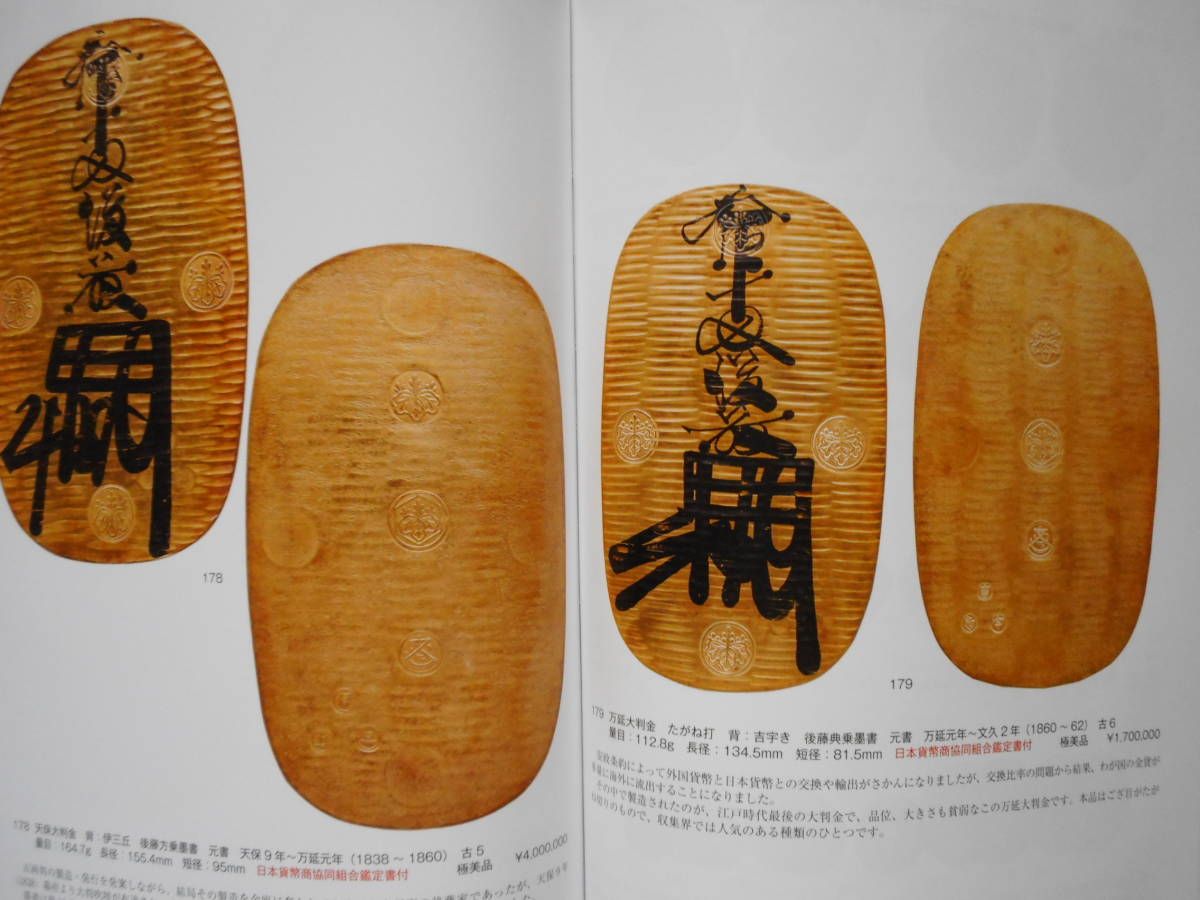 178
178 天保大判金 背：伊三丘 後藤方乗墨書 元書 天保９年～万延元年（1838～1860） 古５
量目：164.7g 長径：155.4mm 短径：95mm 日本貨幣商協同組合鑑定書付 極美品 ¥4,000,000
179
179 万延大判金 たがね打 背：吉宇き 後藤典乗墨書 元書 万延元年～文久２年（1860～62） 古６
量目：112.8g 長径：134.5mm 短径：81.5mm 日本貨幣商協同組合鑑定書付 極美品 ¥1,700,000
安政条約によって外国貨幣と日本貨幣との交換や輸出がさかんになりましたが、交換比率の問題から結果、わが国の金貨が
多量に海外に流出することになりました。
その中で製造されたのが、江戸時代最後の大判金で、品位、大きさも貧弱なこの万延大判金です。本品はござ目がたが
ね切りのもので、収集界では人気のある種類のひとつです。